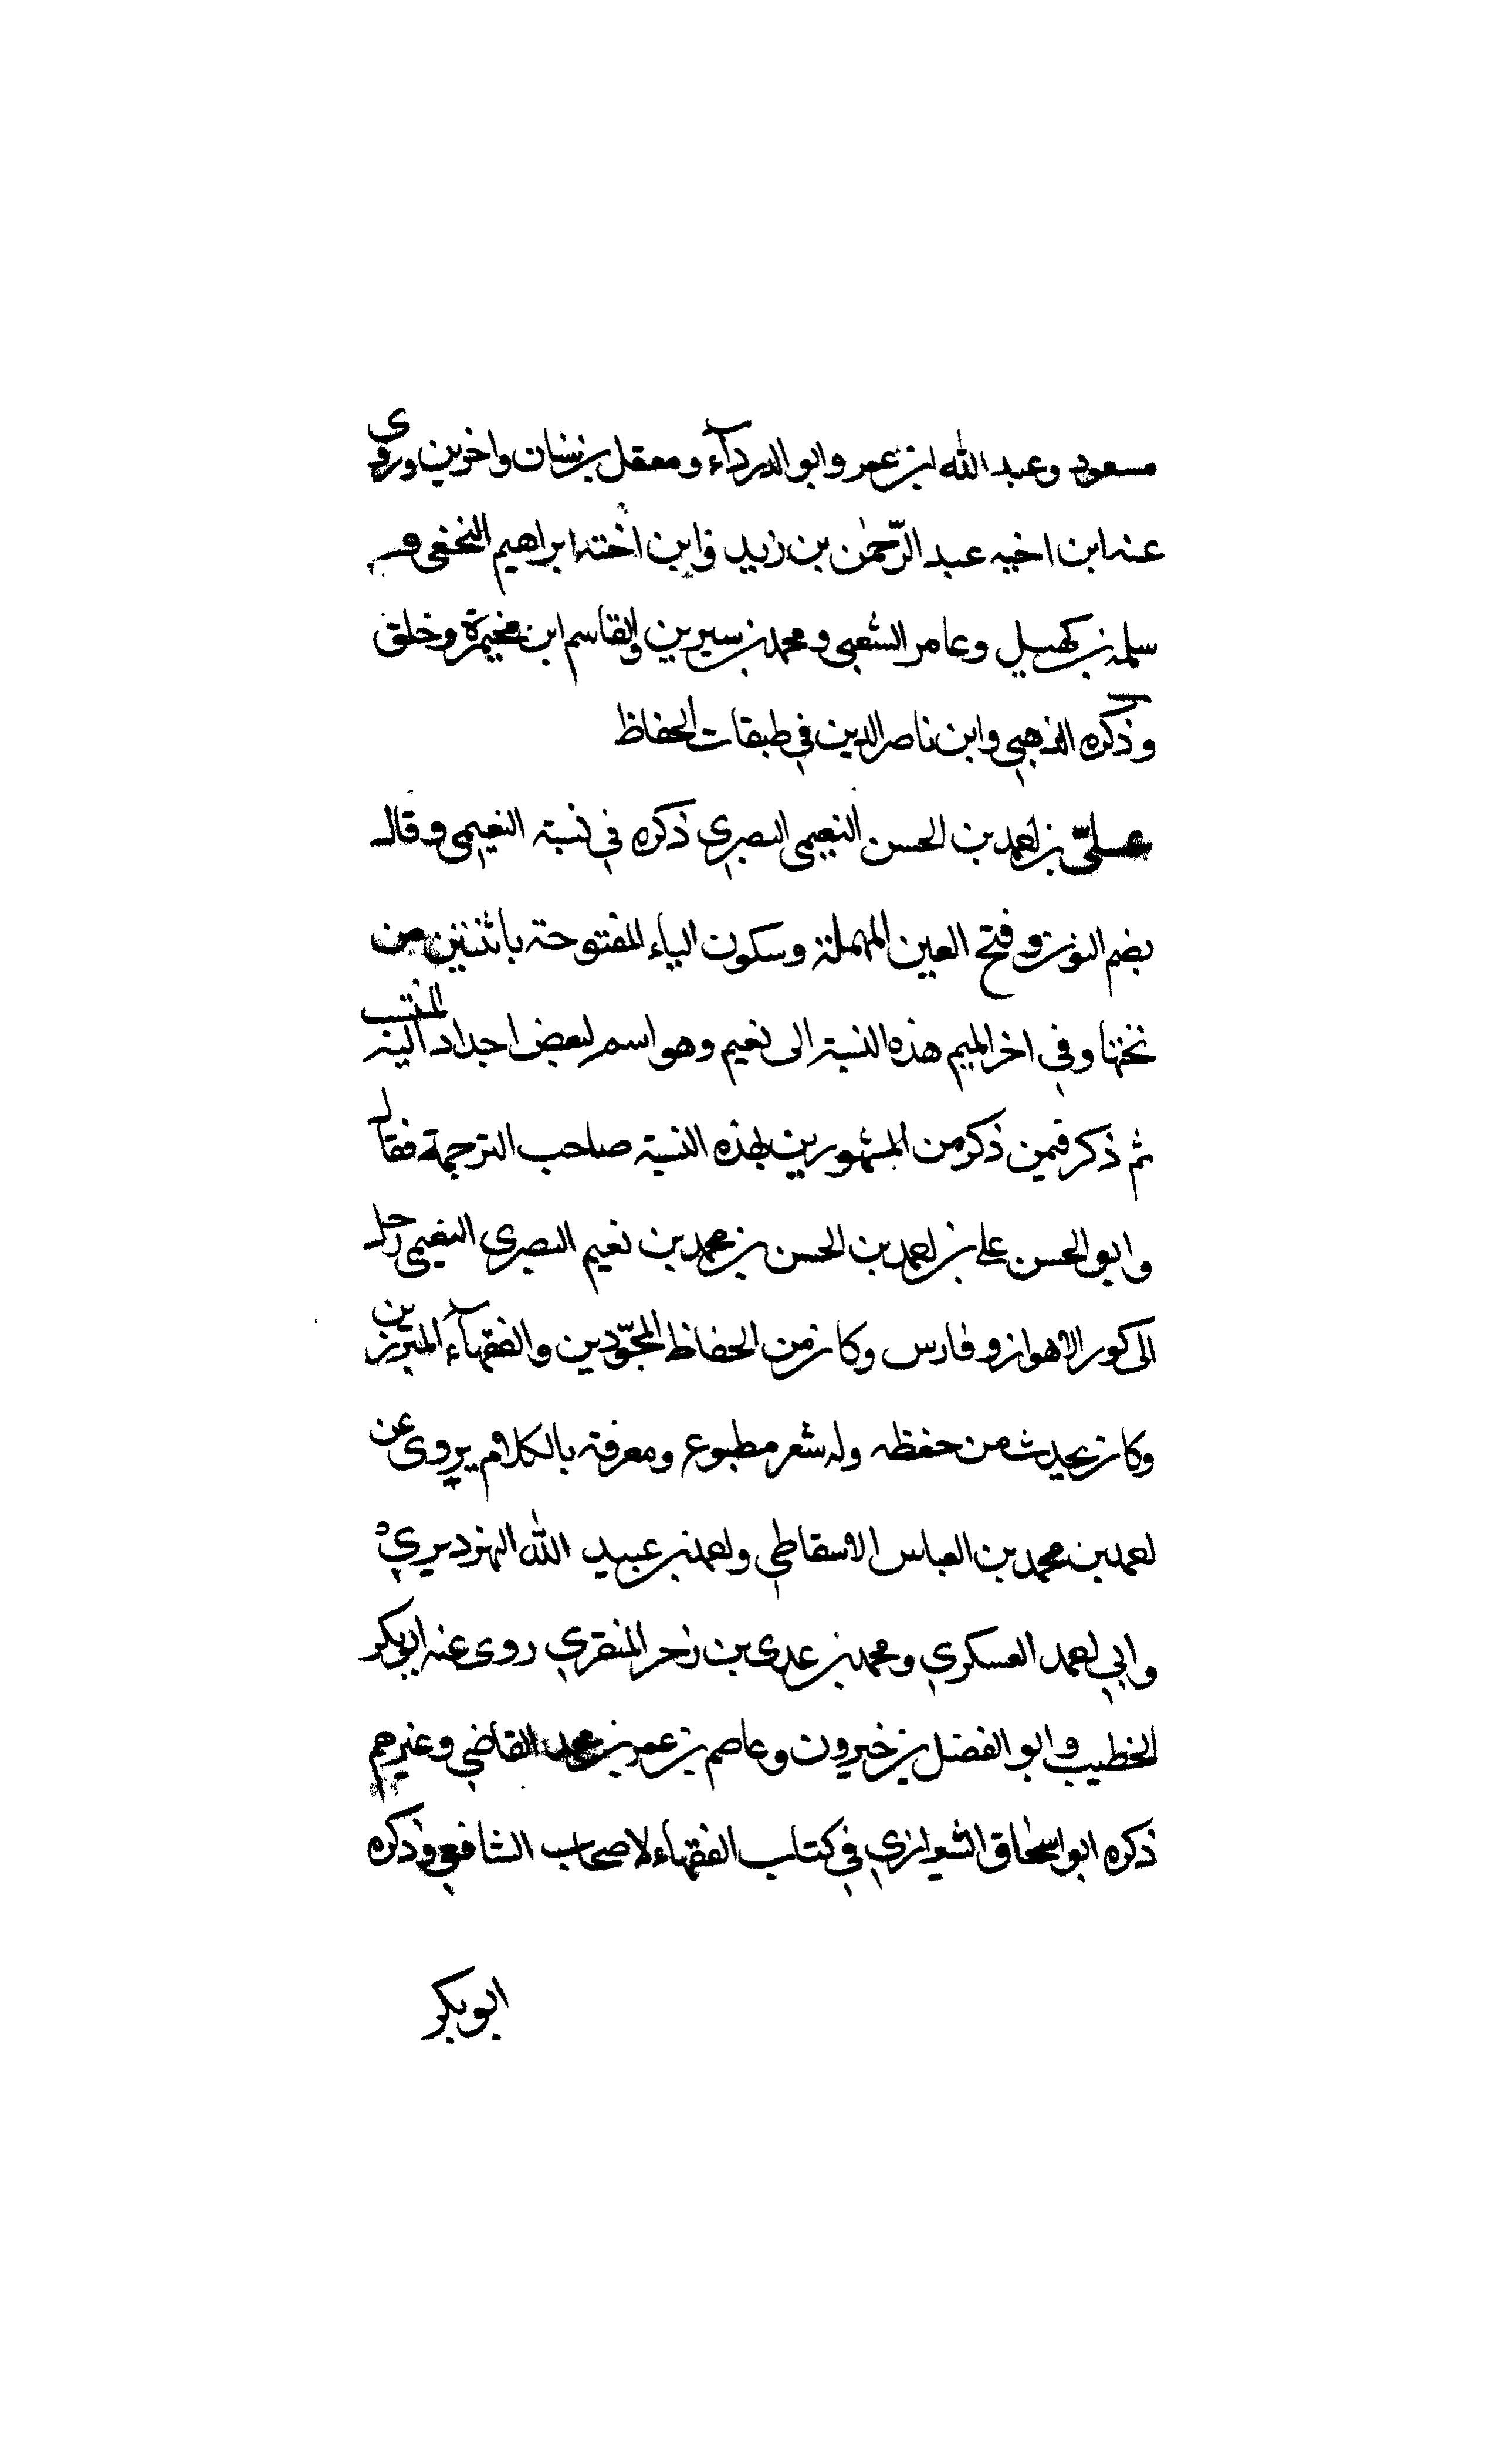 مسعود وعبد الله ابن عمر وابو الدردآء ومعقل بن سنان واخرين وروى
عنه ابن اخيه عبد الرّحمٰن بن زيد وابن اخته ابراهيم النخعى و
سلمة بن كهيل وعامر الشعبى ومحمد بن سيرين والقاسم ابن مخيمرة وخلق
وذكره الذهبي وابن ناصر الدين في طبقات الحفاظ
علىّ بن احمد بن الحسن النعيمى البصري ذكره في نسبة النعيمي وقال
بضم النون وفتح العين المهملة وسكون الياء المفتوحة باثنتين من
تحتها وفي اخر الميم هذه النسبة الى نعيم وهو اسم لبعض اجداد المنتسب اليه
ثم ذكر فمين ذكر من المشهورين بهذه النسبة صاحب الترجمة فقال
وابو الحسن على بن احمد بن الحسن بن محمد بن نعيم البصرى النعيمى رحل
الى كور الاهواز وفارس وكان من الحفاظ المجوّدين والفقهآء المبرزين
وكان يحدث من حفظه وله شعر مطبوع ومعرفة بالكلام يروى عن
احمد بن محمد بن العباس الاسقاطي واحمد بن عبيد الله النهرديري
وابي احمد العسكري ومحمد بن عدى بن زحر المنقري روى عنه ابو بكر
الخطيب وابو الفضل بن خيرون وعاصم بن عمر بن محمد القاضي وغيرهم
ذكره ابو اسحاق الشيرازي في كتاب الفقهاء لاصحاب الشافعي وذكره
ابو بكر